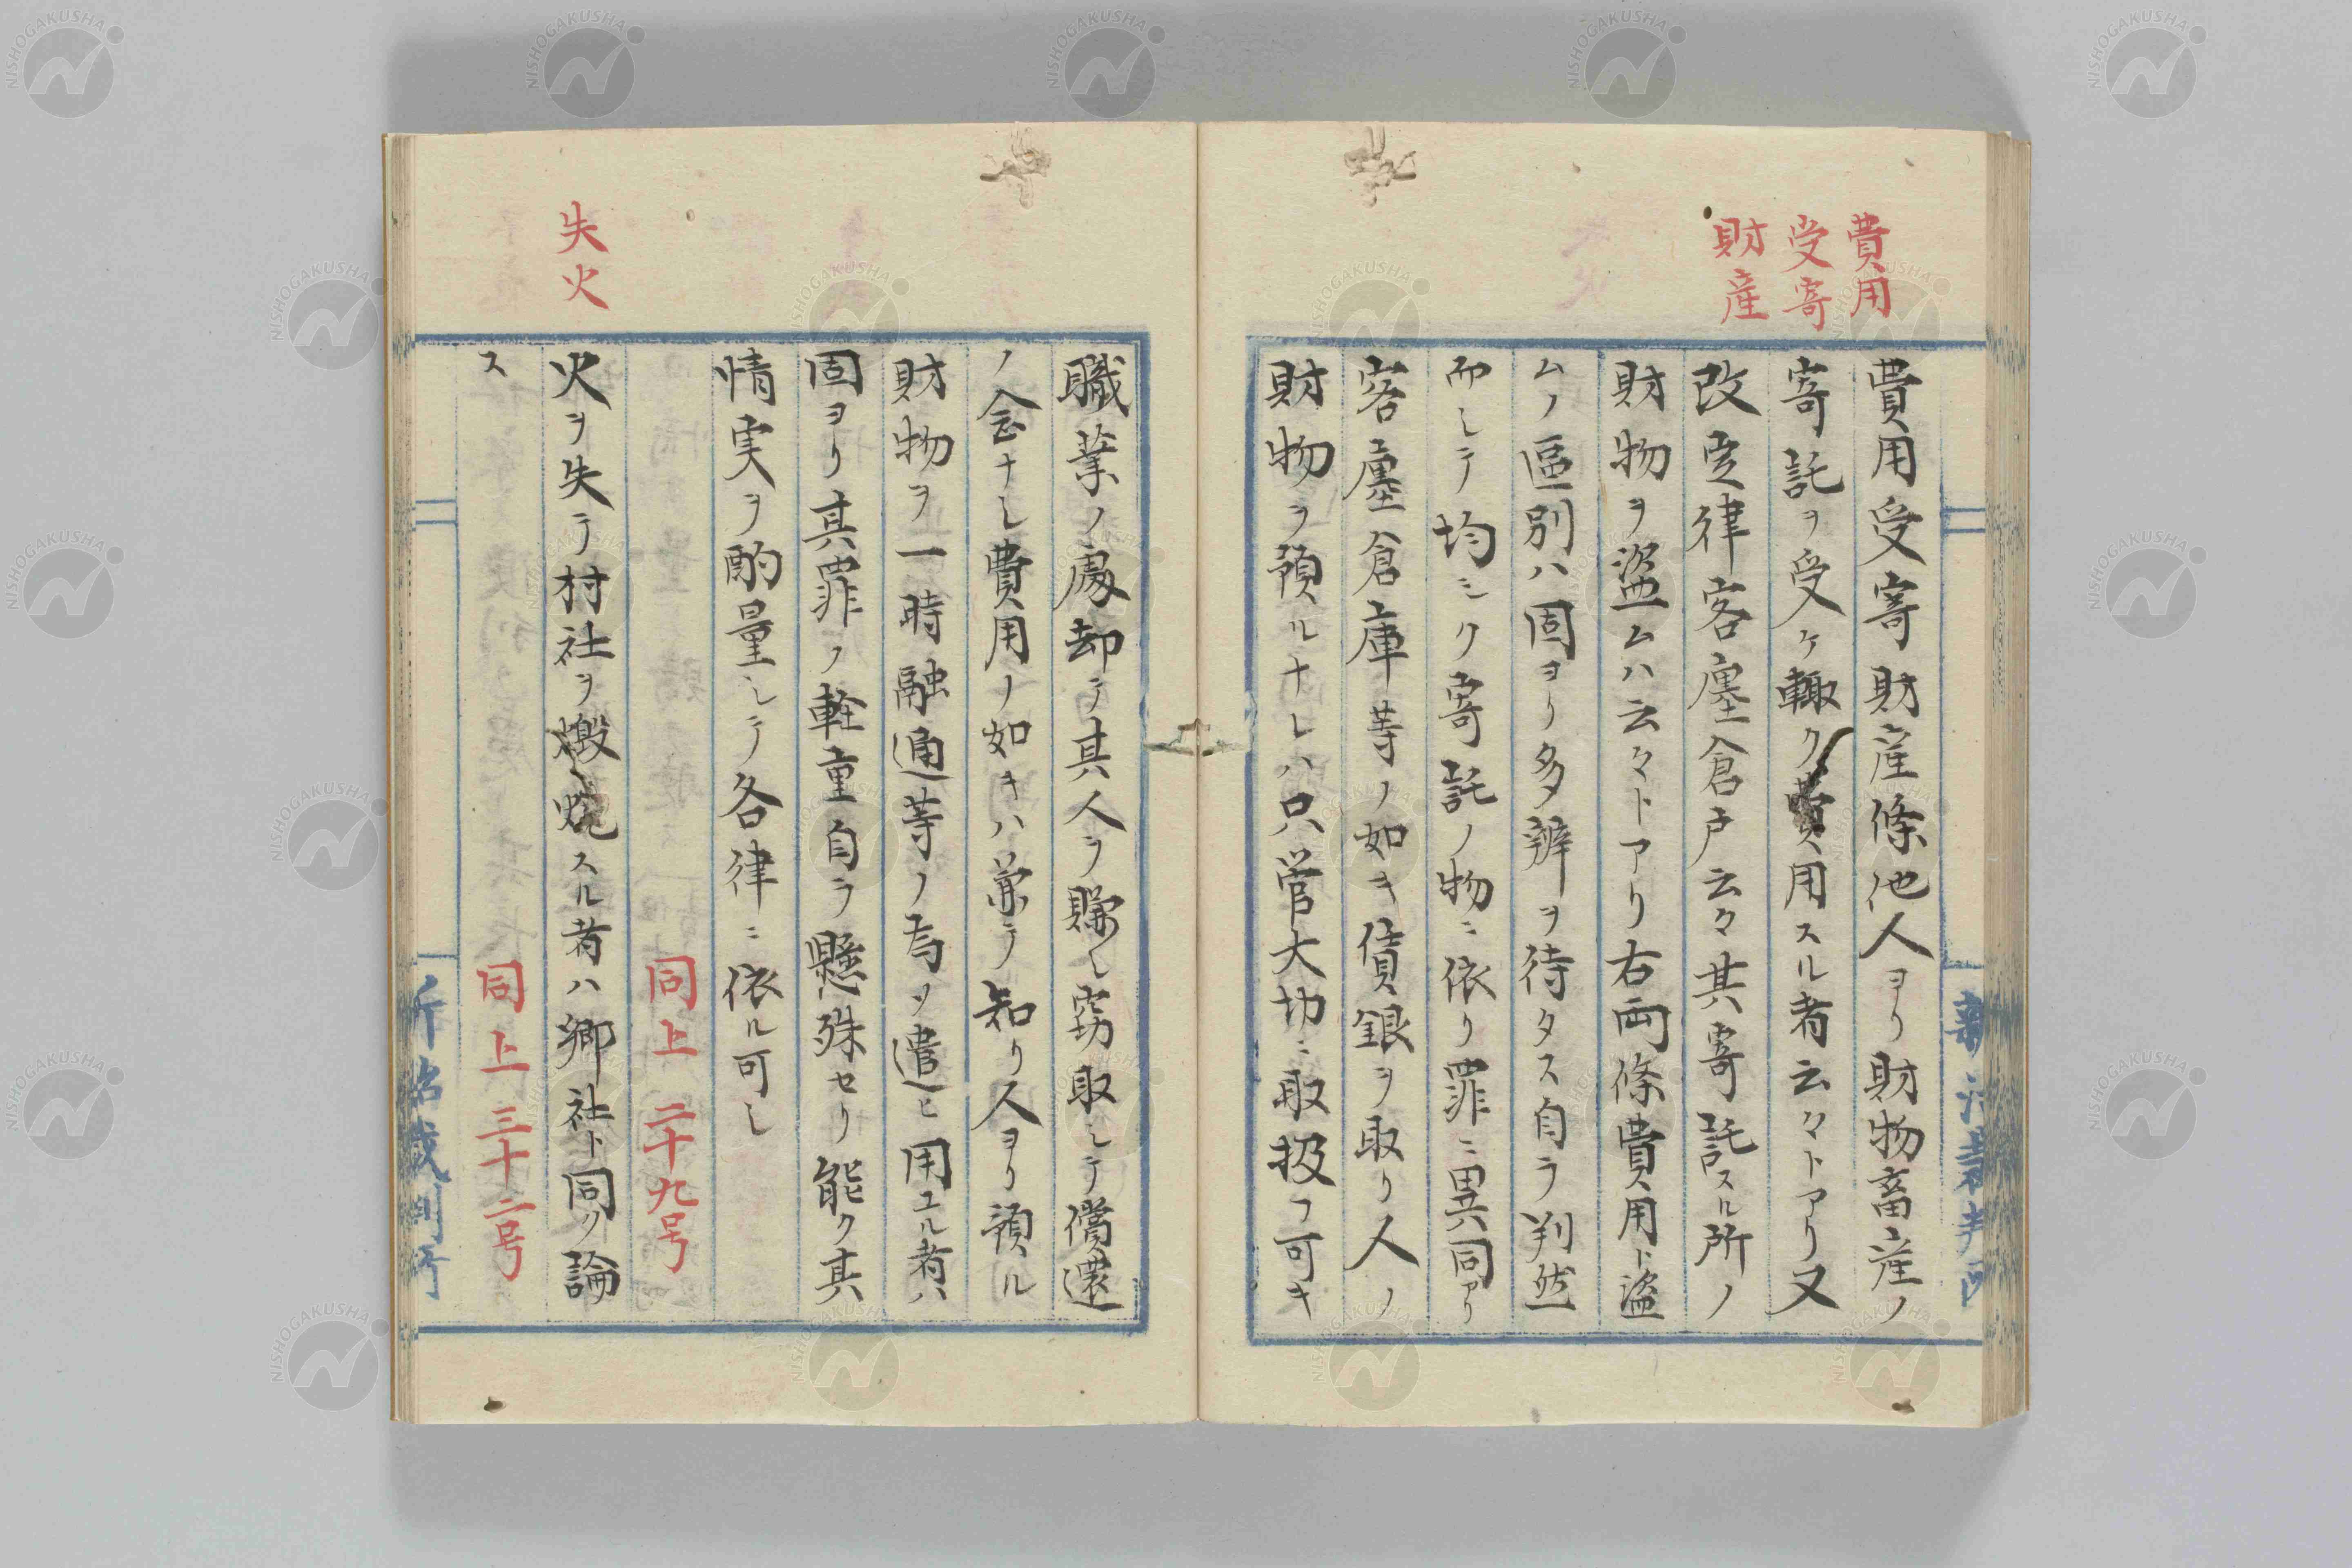 費用
受寄
財産
費用受寄財産條他人ヨリ財物畜産ノ
寄託ヲ受ケ輙ク費用スル者云々トアリ又
改定律客廛倉戸云々其寄託スル所ノ
財物ヲ盗ムハ云々トアリ右両條費用ト盗
ムノ區別ハ固ヨリ多辨ヲ待タス自ラ判然
而シテ均シク寄託ノ物ニ依リ罪ニ異同アリ
客廛倉庫等ノ如キ債銀ヲ取リ人ノ
財物ヲ預ルナレハ只管大切ニ取扱フ可キ
職業ノ處却テ其人ヲ賺シ窃取シテ償還
ノ念ナシ費用ノ如キハ兼テ知リ人ヨリ預ル
財物ヲ一時融通等ノ為ヲ遣ヒ用ユル者ハ
固ヨリ其罪ノ軽重自ラ懸殊セリ能ク其
情実ヲ酌量シテ各律ニ依ル可シ
同上二十九号
失火
火ヲ失テ村社ヲ燬焼スル者ハ郷社ト同ク論
ス
同上三十二号
NISHOGAKUSHA